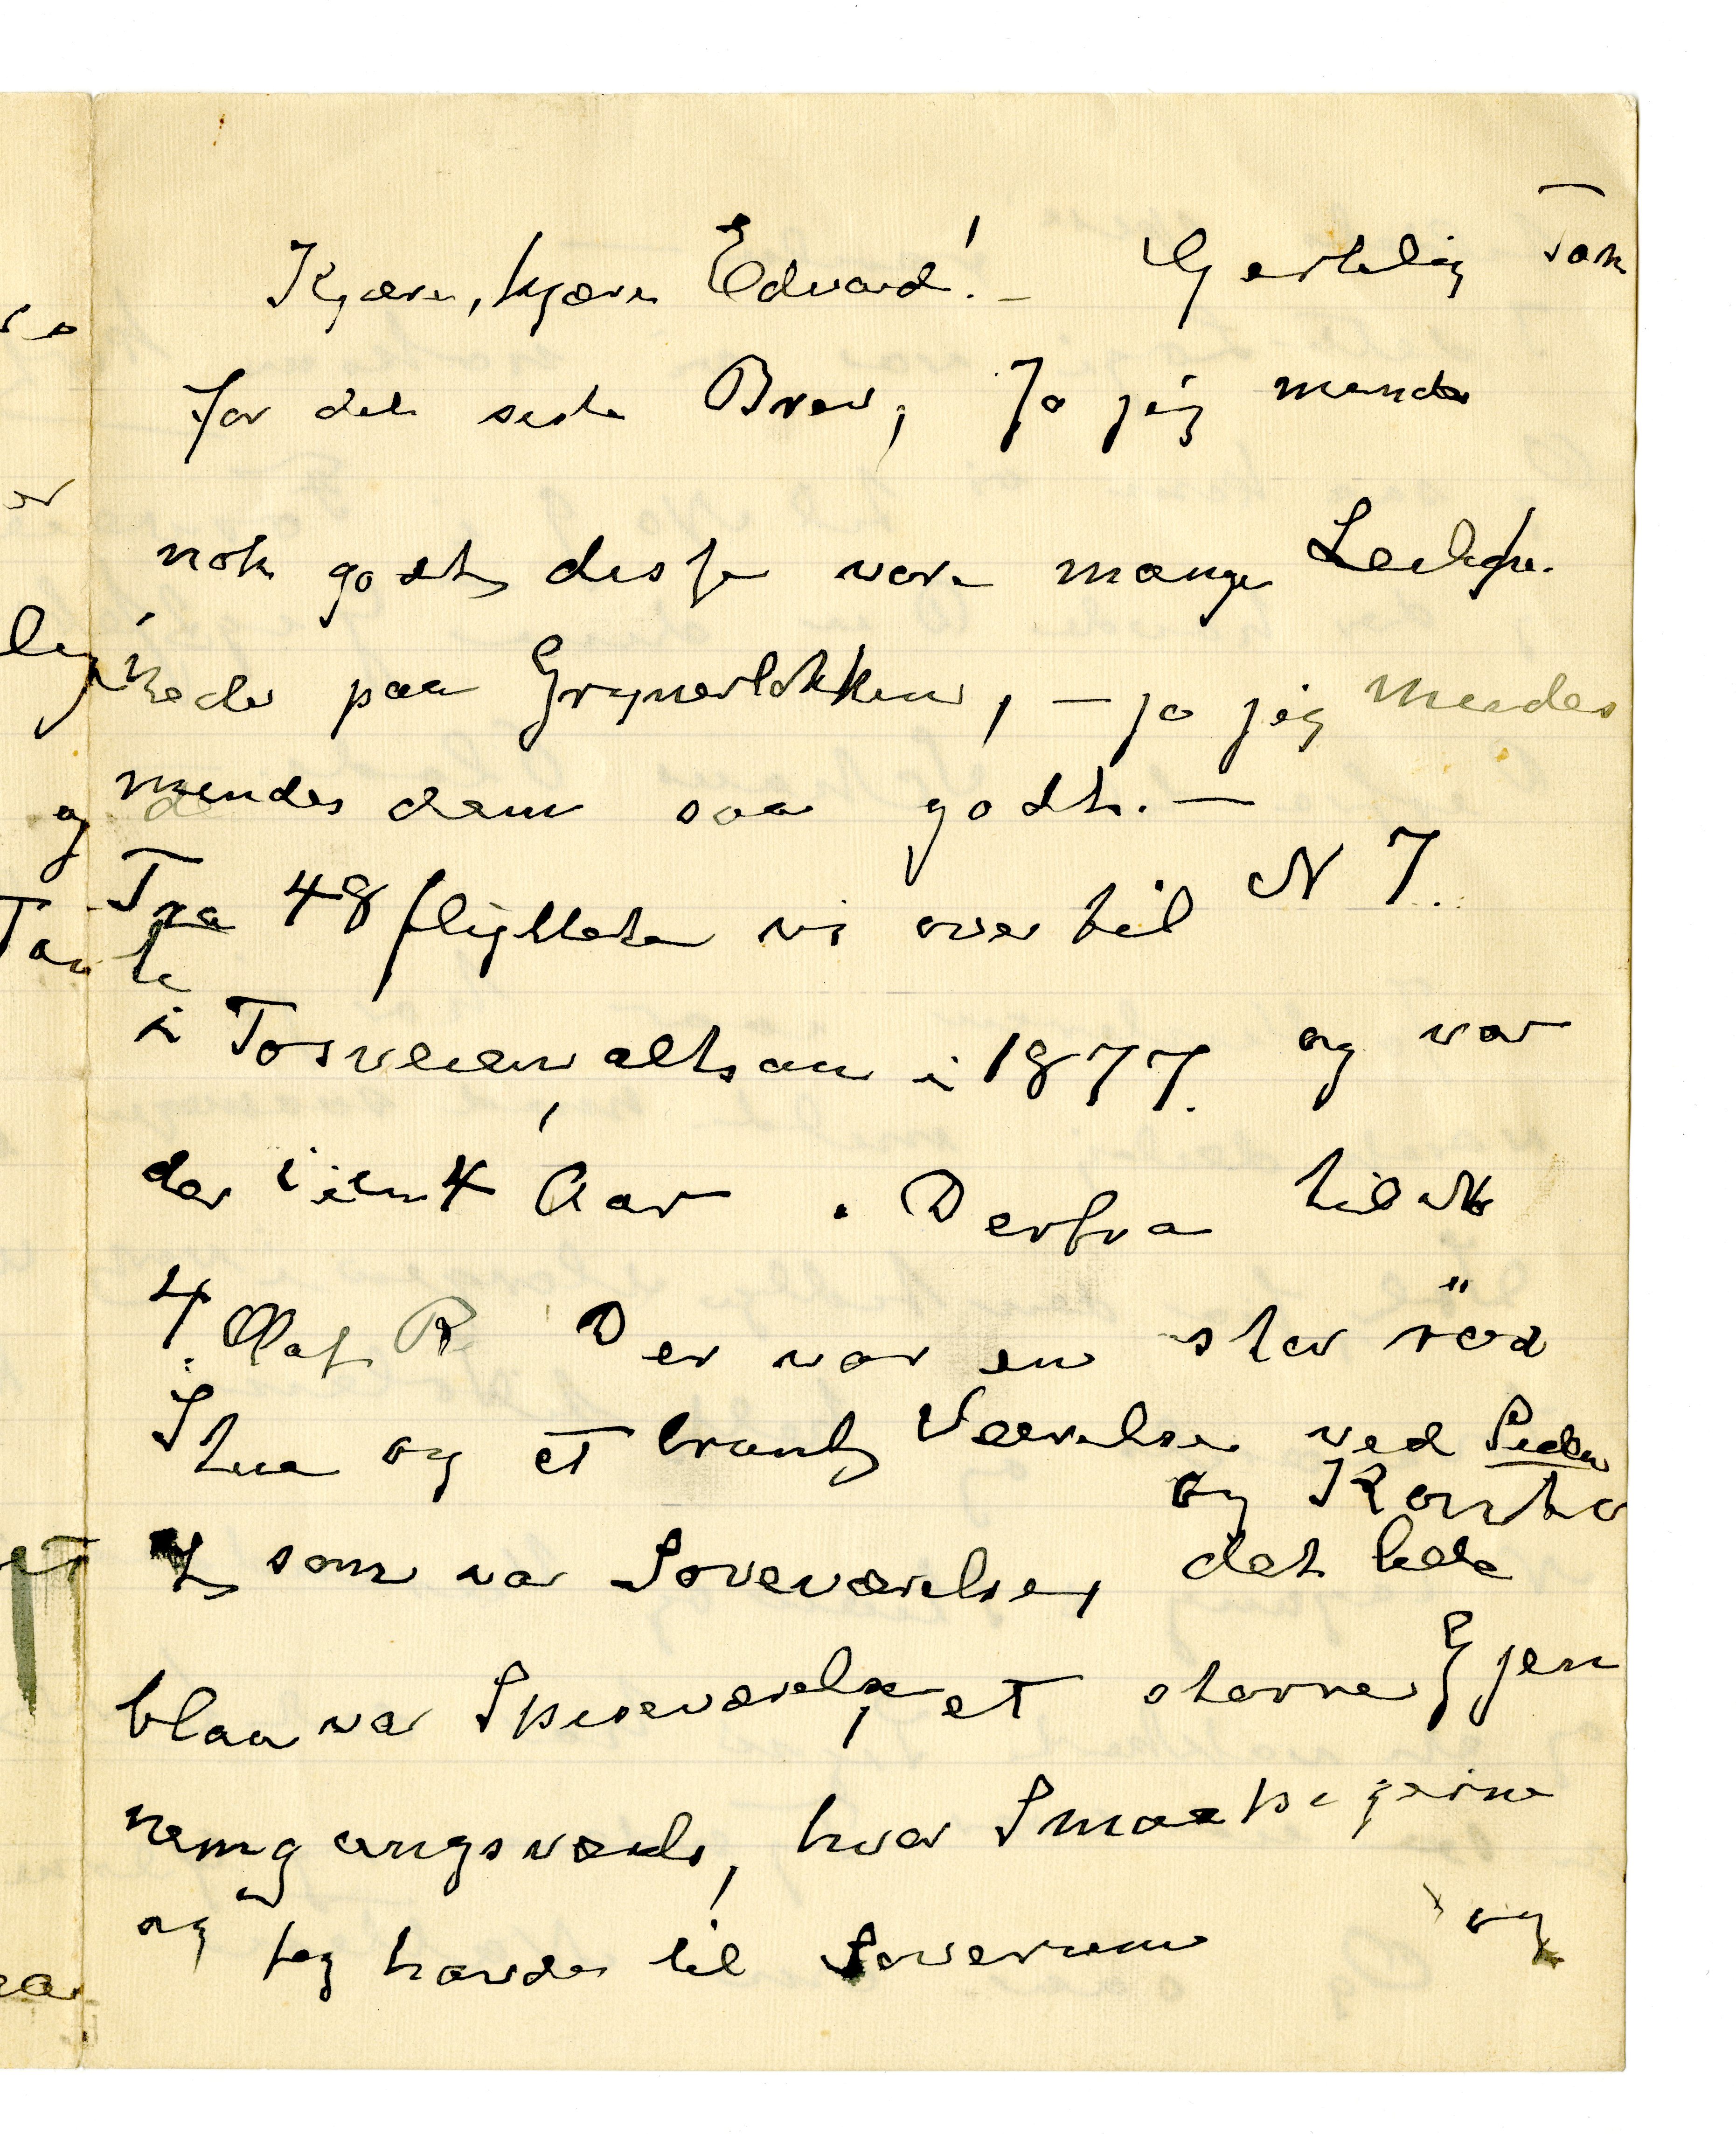 Kjære, kjære Edvard! – Hjertelig Tak
for dit siste Brev, Ja jeg mendes
nok godt disse vore mange Leilighe.
heder paa Grynerløkken, – ja jeg mendes
mendes dem saa godt. –
Fra 48 flyttede vi over til N 7.
i Fosveien, altsaa i 1877. og var
der i 4 Aar. Derfra til No
4. Olaf R Der var en stor rød
Stue og et trangt Værelse ved Siden
og Kontor
som var Soveværelse, det lille
blaa var Spiseværelse, et større Gjen
nemgangsværels, hvor Smaapigerne
og jeg havde til Soverum og